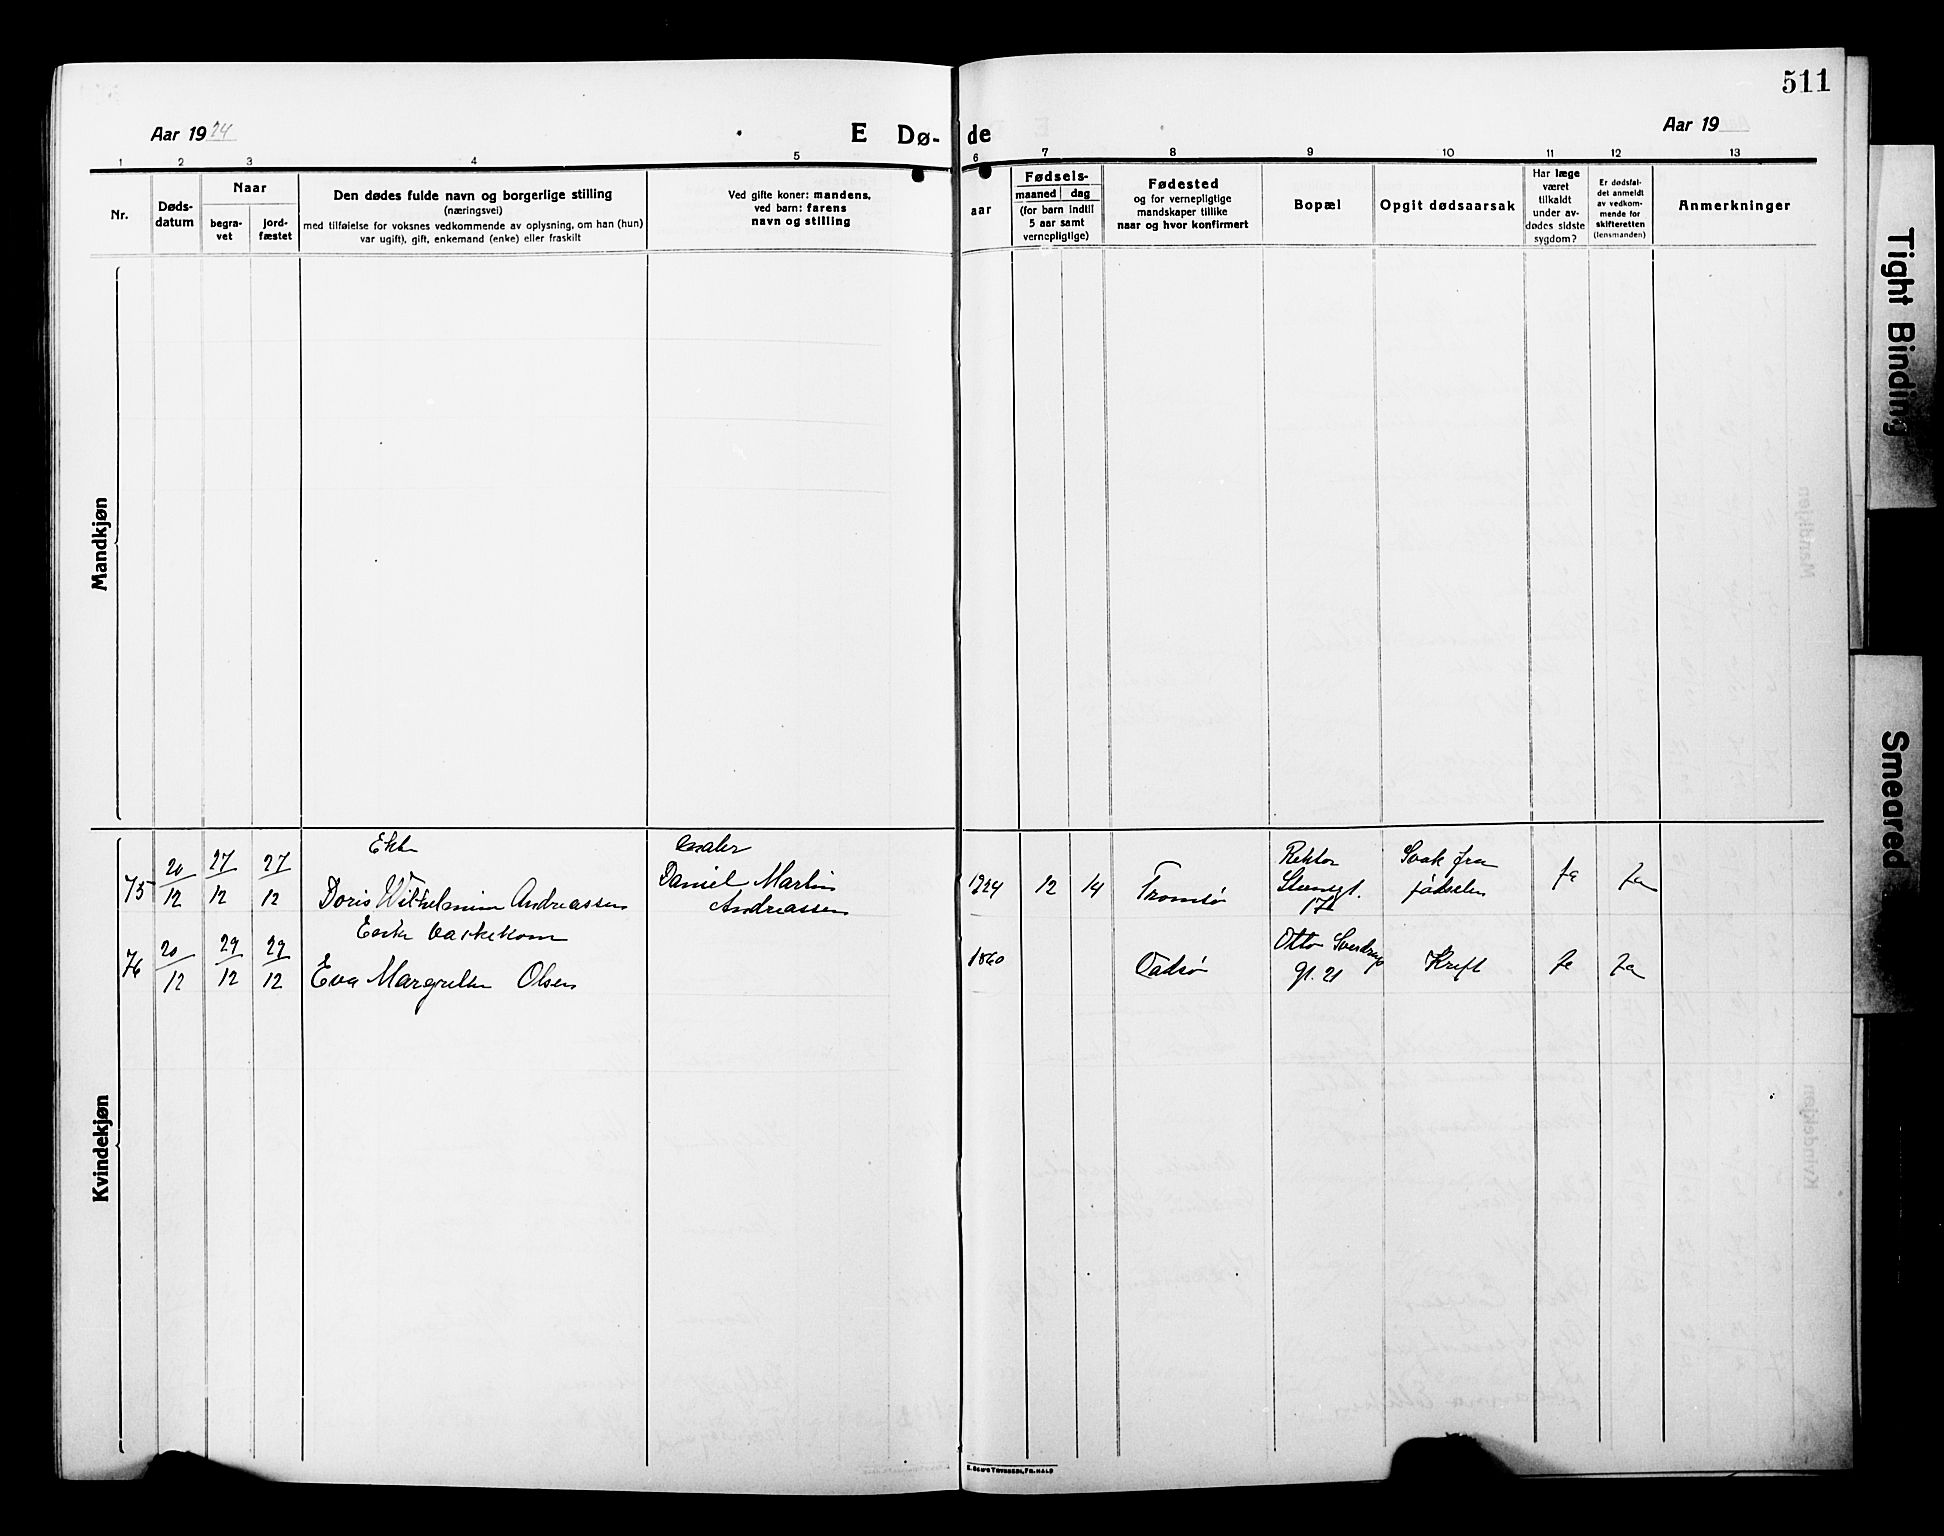 511
Aar 1924
E Dø-
de
Aar 19
1 2 3 4 5 6 7 8 9 10 11 12 13
Nr.
Døds-
datum
Naar
begra-
vet
jord-
fæstet
Den dødes fulde navn og borgerlige stilling
(næringsvei)
med tilføielse for voksnes vedkommende av oplysning, om han (hun)
var ugift), gift, enkemand (enke) eller fraskilt
Ved gifte koner: mandens,
ved barn: farens
navn og stilling
Fødsels-
aar
maaned dag
(for barn indtil
5 aar samt
vernepligtige)
Fødested
og for vernepligtige
mandskaper tillike
naar og hvor konfirmert
Bopæl
Opgit dødsaarsak
Har læge
været
tilkaldt
under av-
dødes sidste
sygdom?
Er dødsfal-
det anmeldt
av vedkom-
mende for
skifteretten
(lensmanden)
Anmerkninger
Mandkjøn
Kvindekjøn
75
20/12
27/12
27/12
Ekte
Doris Wilhelmine Andreassen
Daniel Martin
Andreassen
1924
12
14
Tromsø
Rektor
Steengt.
Svak fra
fødselen
ja
ja
76
20/12
29/12
29/12
Enke Vaskekone
Eva Margrethe Olsen
1860
Otto Sverdrups
gt. 21
Kreft
ja
ja
Tight Binding
Smeared